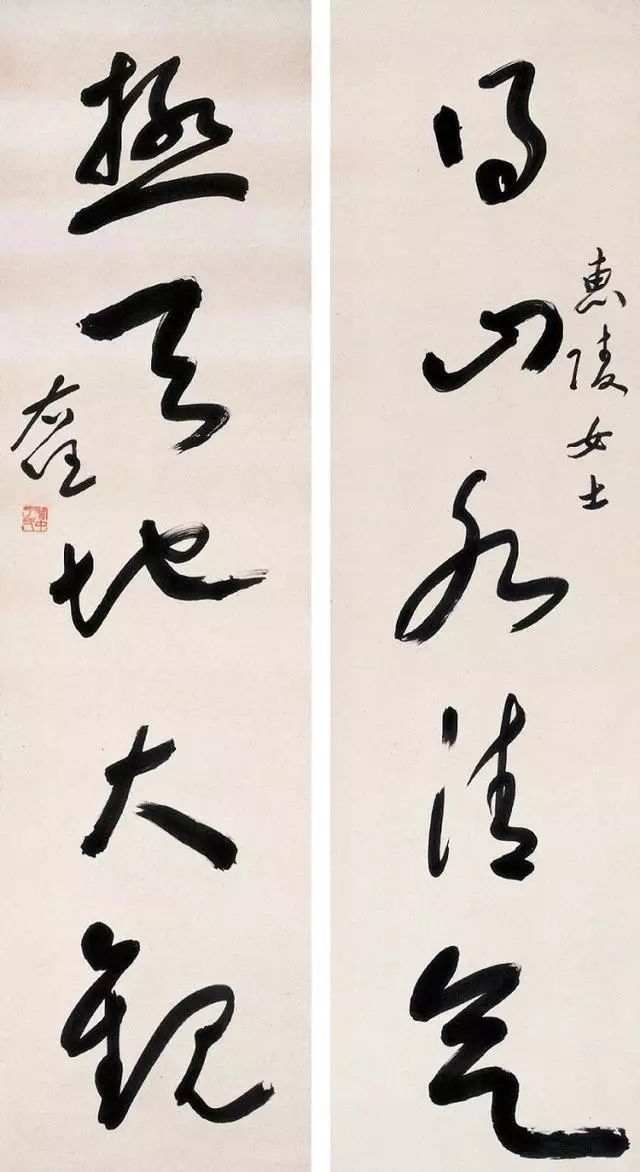 得山水清气
惠陵女士
極天地大觀
右任